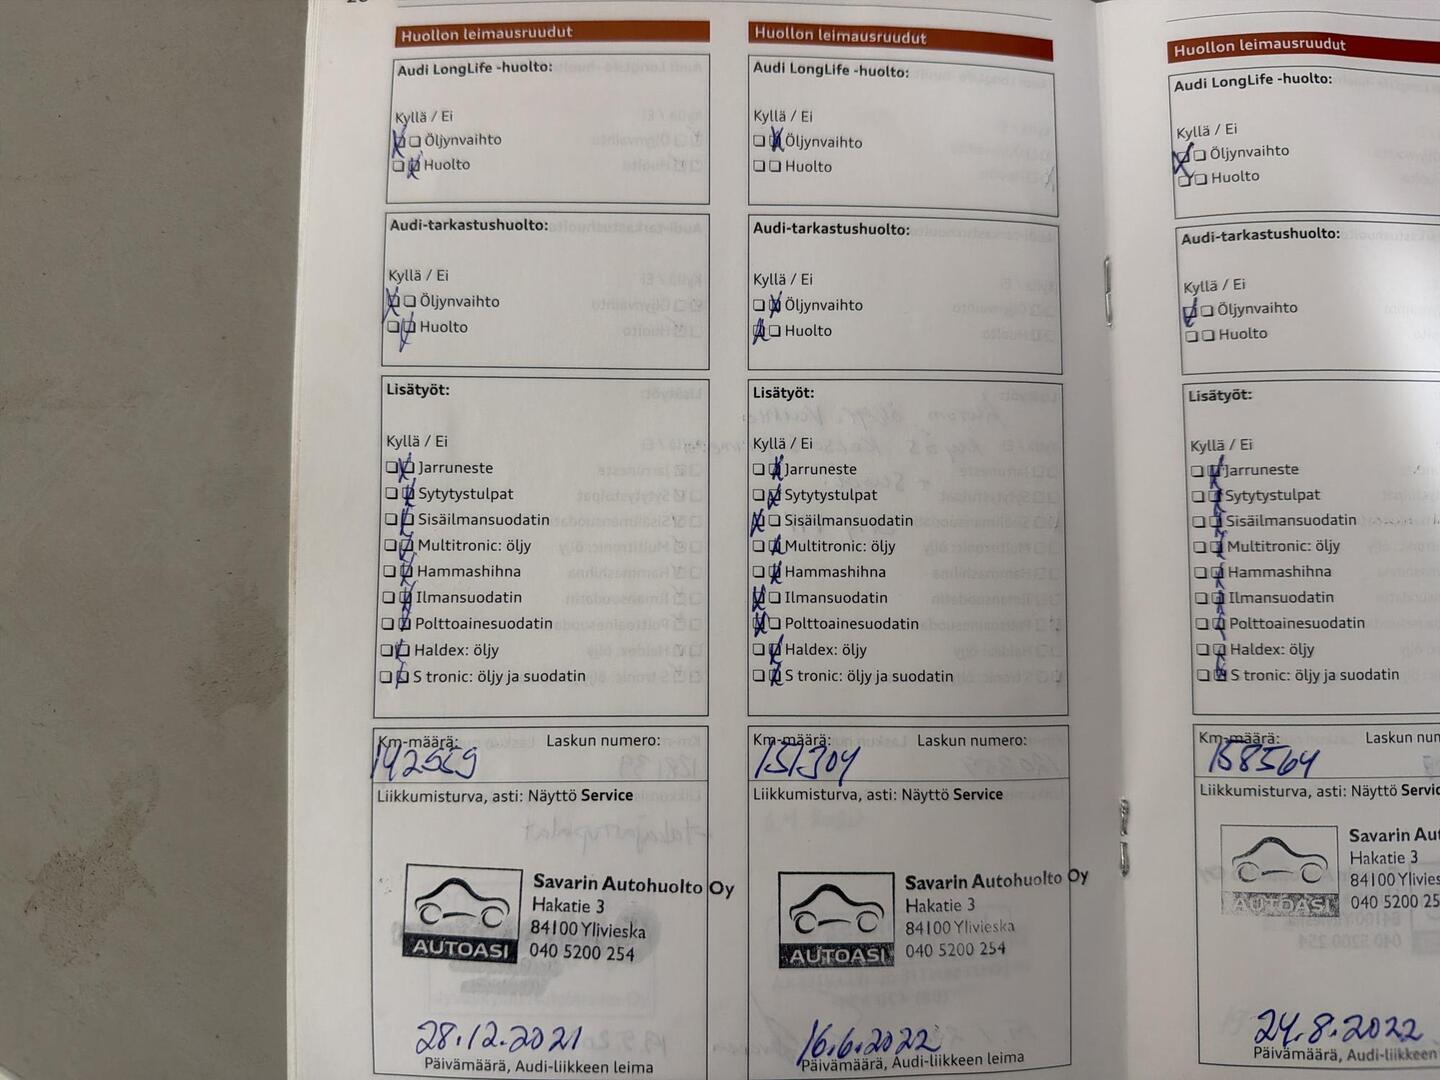 Huollon leimausruudut
Audi LongLife -huolto:
Kyllä / Ei
Öljynvaihto
Huolto
Audi-tarkastushuolto:
Kyllä / Ei
Öljynvaihto
Huolto
Lisätyöt:
Kyllä / Ei
Jarruneste
Sytytystulpat
Sisäilmansuodatin
Multitronic: öljy
Hammashihna
Ilmansuodatin
Polttoainesuodatin
Haldex: öljy
S tronic: öljy ja suodatin
Km-määrä: Laskun numero:
142559
Liikkumisturva, asti: Näyttö Service
Savarin Autohuolto Oy
Hakatie 3
84100 Ylivieska
040 5200 254
AUTOASI
28.12.2021
Päivämäärä, Audi-liikkeen leima
Huollon leimausruudut
Audi LongLife -huolto:
Kyllä / Ei
Öljynvaihto
Huolto
Audi-tarkastushuolto:
Kyllä / Ei
Öljynvaihto
Huolto
Lisätyöt:
Kyllä / Ei
Jarruneste
Sytytystulpat
Sisäilmansuodatin
Multitronic: öljy
Hammashihna
Ilmansuodatin
Polttoainesuodatin
Haldex: öljy
S tronic: öljy ja suodatin
Km-määrä: Laskun numero:
151304
Liikkumisturva, asti: Näyttö Service
Savarin Autohuolto Oy
Hakatie 3
84100 Ylivieska
040 5200 254
AUTOASI
16.6.2022
Päivämäärä, Audi-liikkeen leima
Huollon leimausruudut
Audi LongLife -huolto:
Kyllä / Ei
Öljynvaihto
Huolto
Audi-tarkastushuolto:
Kyllä / Ei
Öljynvaihto
Huolto
Lisätyöt:
Kyllä / Ei
Jarruneste
Sytytystulpat
Sisäilmansuodatin
Multitronic: öljy
Hammashihna
Ilmansuodatin
Polttoainesuodatin
Haldex: öljy
S tronic: öljy ja suodatin
Km-määrä: Laskun num
158564
Liikkumisturva, asti: Näyttö Servic
Savarin Aut
Hakatie 3
84100 Ylivies
040 5200 25
AUTOASI
24.8.2022
Päivämäärä, Audi-liikkeen